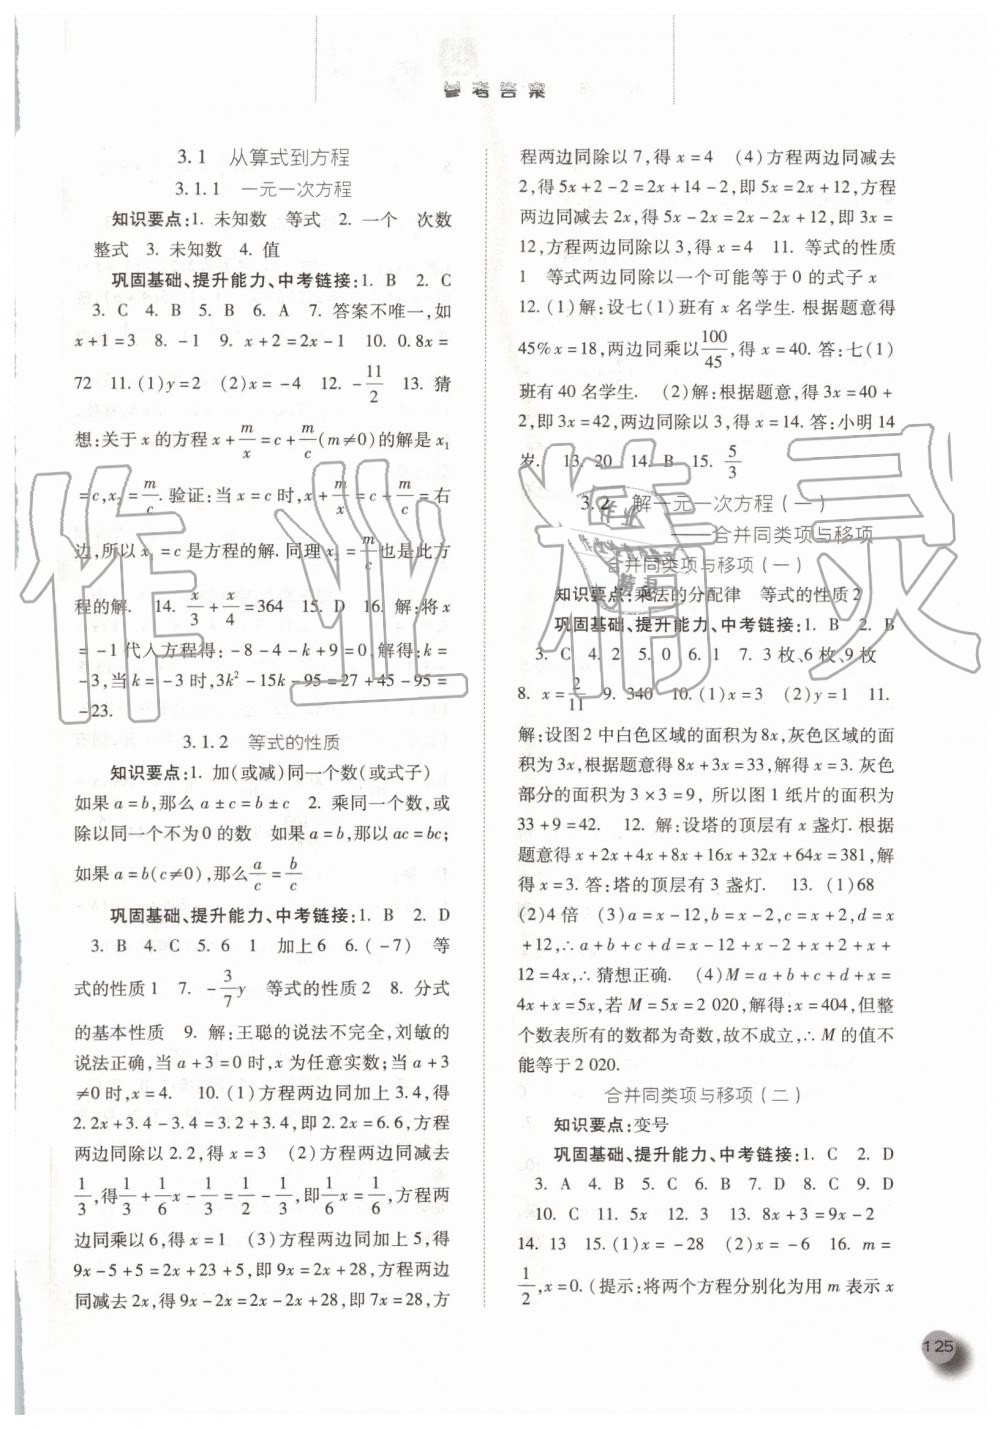 参考答案
3.1 从算式到方程
3.1.1 一元一次方程
知识要点:1. 未知数 等式 2. 一个 次数
整式 3. 未知数 4. 值
巩固基础、提升能力、中考链接:1. B 2. C
3. C 4. B 5. B 6. A 7. 答案不唯一,如
x+1=3 8. -1 9. x+2=2x-1 10. 0.8x=
72 11. (1)y=2 (2)x=-4 12. -11/2 13. 猜
想:关于 x 的方程 x+m/x=c+m/c(m≠0)的解是 x₁
=c,x₂=m/c. 验证:当 x=c 时,x+m/x=c+m/c=右
边,所以 x₁=c 是方程的解. 同理 x₂=m/c也是此方
程的解. 14. x/3+x/4=364 15. D 16. 解:将 x
=-1 代入方程得:-8-4-k+9=0.解得:k=
-3,当 k=-3 时,3k²-15k-95=27+45-95=
-23.
3.1.2 等式的性质
知识要点:1. 加(或减)同一个数(或式子)
如果 a=b,那么 a±c=b±c 2. 乘同一个数,或
除以同一个不为 0 的数 如果 a=b,那以 ac=bc;
如果 a=b(c≠0),那么a/c=b/c
巩固基础、提升能力、中考链接:1. B 2. D
3. B 4. C 5. 6 1 加上 6 6. (-7) 等
式的性质 1 7. -3/7y 等式的性质 2 8. 分式
的基本性质 9. 解:王聪的说法不完全,刘敏的
说法正确,当 a+3=0 时,x 为任意实数;当 a+3
≠0 时,x=4. 10. (1)方程两边同加上 3.4,得
2.2x+3.4-3.4=3.2+3.4,即 2.2x=6.6,方程
两边同除以 2.2,得 x=3 (2)方程两边同减去
1/3,得1/3+1/6x-1/3=1/2-1/3,即1/6x=1/6,方程两
边同乘以 6,得 x=1 (3)方程两边同加上 5,得
9x-5+5=2x+23+5,即 9x=2x+28,方程两边
同减去 2x,得 9x-2x=2x-2x+28,即 7x=28,方
程两边同除以 7,得 x=4 (4)方程两边同减去
2,得 5x+2-2=2x+14-2,即 5x=2x+12,方程
两边同减去 2x,得 5x-2x=2x-2x+12,即 3x=
12,方程两边同除以 3,得 x=4 11. 等式的性质
1 等式两边同除以一个可能等于 0 的式子 x
12. (1)解:设七(1)班有 x 名学生. 根据题意得
45%x=18,两边同乘以100/45,得 x=40. 答:七(1)
班有 40 名学生. (2)解:根据题意,得 3x=40+
2,即 3x=42,两边同除以 3,得 x=14. 答:小明 14
岁. 13. 20 14. B 15. 5/3
3.2 解一元一次方程(一)
——合并同类项与移项
合并同类项与移项(一)
知识要点:乘法的分配律 等式的性质 2
巩固基础、提升能力、中考链接:1. B 2. B
3. C 4. 2 5. 0 6. 1 7. 3 枚、6 枚、9 枚
8. x=2/11 9. 340 10. (1)x=3 (2)y=1 11.
解:设图 2 中白色区域的面积为 8x,灰色区域的面
积为 3x,根据题意得 8x+3x=33,解得 x=3. 灰色
部分的面积为 3×3=9, 所以图 1 纸片的面积为
33+9=42. 12. 解:设塔的顶层有 x 盏灯. 根据
题意得 x+2x+4x+8x+16x+32x+64x=381,解
得 x=3. 答:塔的顶层有 3 盏灯. 13. (1)68
(2)4 倍 (3)a=x-12,b=x-2,c=x+2,d=x
+12,∴a+b+c+d=x-12+x-2+x+2+x+
12=4x,∴猜想正确. (4)M=a+b+c+d+x=
4x+x=5x,若 M=5x=2 020,解得:x=404,但整
个数表所有的数都为奇数,故不成立,∴M 的值不
能等于 2 020.
合并同类项与移项(二)
知识要点:变号
巩固基础、提升能力、中考链接:1. C 2. D
3. A 4. B 5. C 6. B 7. D 8. C 9. D
10. C 11. 5x 12. 3 13. 8x+3=9x-2
14. 13 15. (1)x=-28 (2)x=-6 16. m=
1/2,x=0. (提示:将两个方程分别化为用 m 表示 x
125
作业精灵